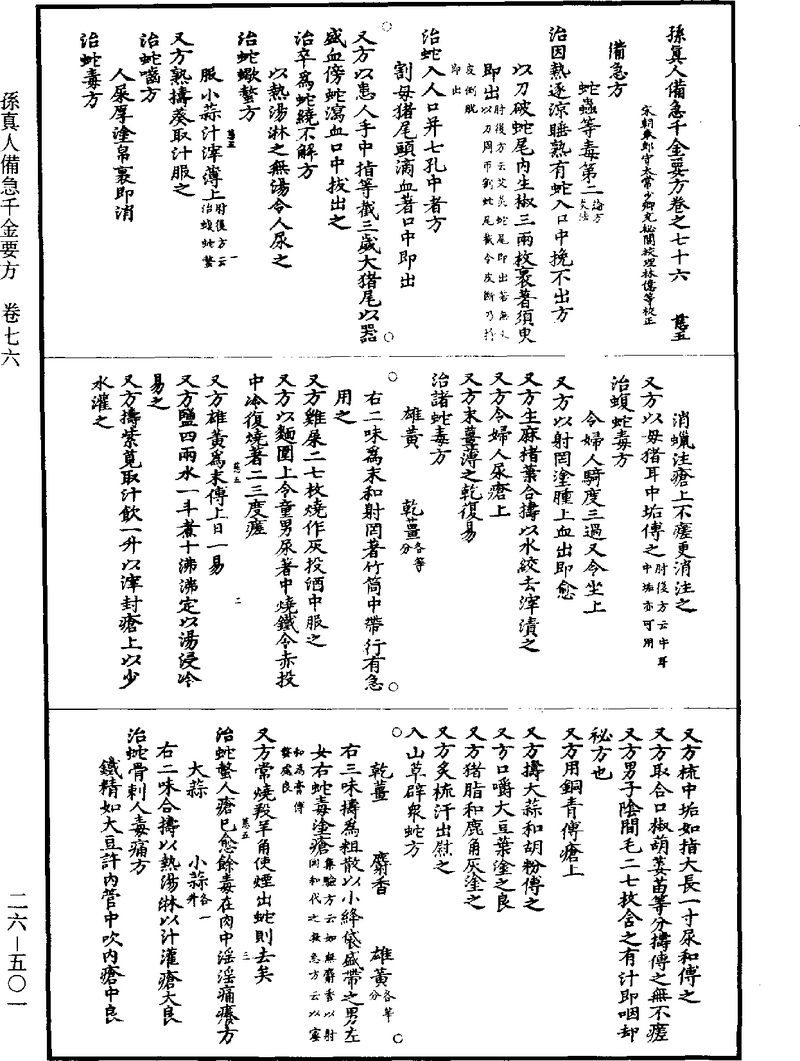 孫真人備急千金要方 卷七六
二六－五〇一
孫真人備急千金要方卷之七十六 慧五
宋朝奉郎守太常少卿充祕閣校理林億等校正
備急方
蛇蟲等毒第二論方灸法
治因熱逐涼睡熟有蛇入口中挽不出方
以刀破蛇尾內生椒三兩枚裹著須臾
即出肘後方云艾灸蛇尾即出若無火以刀周匝割蛇尾截令皮斷乃捋皮倒脫即出
治蛇入人口并七孔中者方
割母猪尾頭滴血著口中即出
又方以患人手中指等截三歲大猪尾以器
盛血傍蛇瀉血口中拔出之
治卒為蛇繞不解方
以熱湯淋之無湯令人尿之
治蛇蠍螫方
服小蒜汁滓薄上肘後方云治蝮蛇螫
又方熟擣葵取汁服之
治蛇嚙方
人屎厚塗帛裹即消
治蛇毒方
消蠟注瘡上不瘥更消注之
又方以母猪耳中垢傅之肘後方云牛耳中垢亦可用
治蝮蛇毒方
令婦人騎度三過又令坐上
又方以射罔塗腫上血出即愈
又方生麻楮葉合擣以水絞去滓漬之
又方令婦人尿瘡上
又方末薑薄之乾復易
治諸蛇毒方
雄黃 乾薑各等分
右二味為末和射罔著竹筒中帶行有急
用之
又方雞屎二七枚燒作灰投酒中服之
又方以麵圍上令童男尿著中燒鐵令赤投
中冷復燒著二三度瘥
又方雄黃為末傅上日一易
又方鹽四兩水一斗煮十沸沸定以湯浸冷
易之
又方擣紫莧取汁飲一升以滓封瘡上以少
水灌之
又方梳中垢如指大長一寸尿和傅之
又方取合口椒葫荽苗等分擣傅之無不瘥
又方男子陰間毛二七枚含之有汁即咽却
秘方也
又方用銅青傅瘡上
又方擣大蒜和胡粉傅之
又方口嚼大豆葉塗之良
又方猪脂和鹿角灰塗之
又方炙梳汗出熨之
入山草辟衆蛇方
乾薑 麝香 雄黃各等分
右三味擣為粗散以小絳袋盛帶之男左
女右蛇毒塗瘡集驗方云如無麝香以射罔和代之救急方云以蜜和為膏傅螫處良
又方常燒羖羊角使煙出蛇則去矣
治蛇螫人瘡已愈餘毒在肉中淫淫痛癢方
大蒜 小蒜各一升
右二味合擣以熱湯淋以汁灌瘡大良
治蛇骨刺人毒痛方
鐵精如大豆許內管中吹內瘡中良